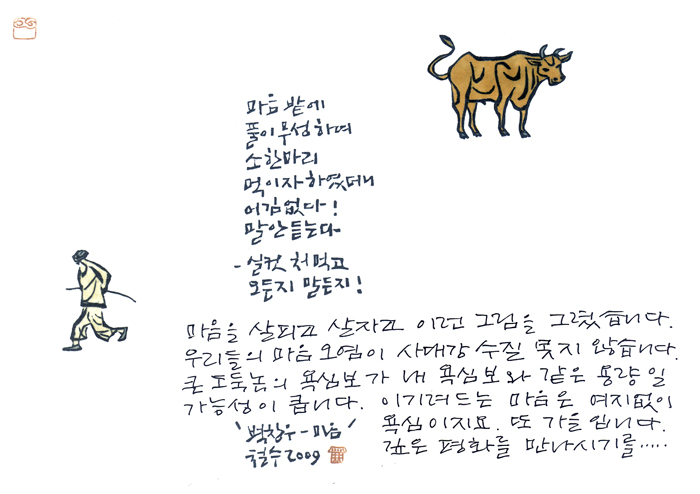 마음 밭에
풀이 무성하여
소 한 마리
먹이자 하였더니
어김없다!
말 안 듣는다
- 실컷 처먹고
오든지 말든지!
마음을 살피고 살자고 이런 그림을 그렸습니다.
우리들의 마음 오염이 사대강 수질 못지 않습니다.
큰 도둑놈의 욕심보가 내 욕심보와 같은 용량일
가능성이 큽니다. 이기려드는 마음은 여지없이
욕심이지요. 또 가을입니다.
깊은 평화를 만나시기를.....
'벽창우-마음'
철수 2009